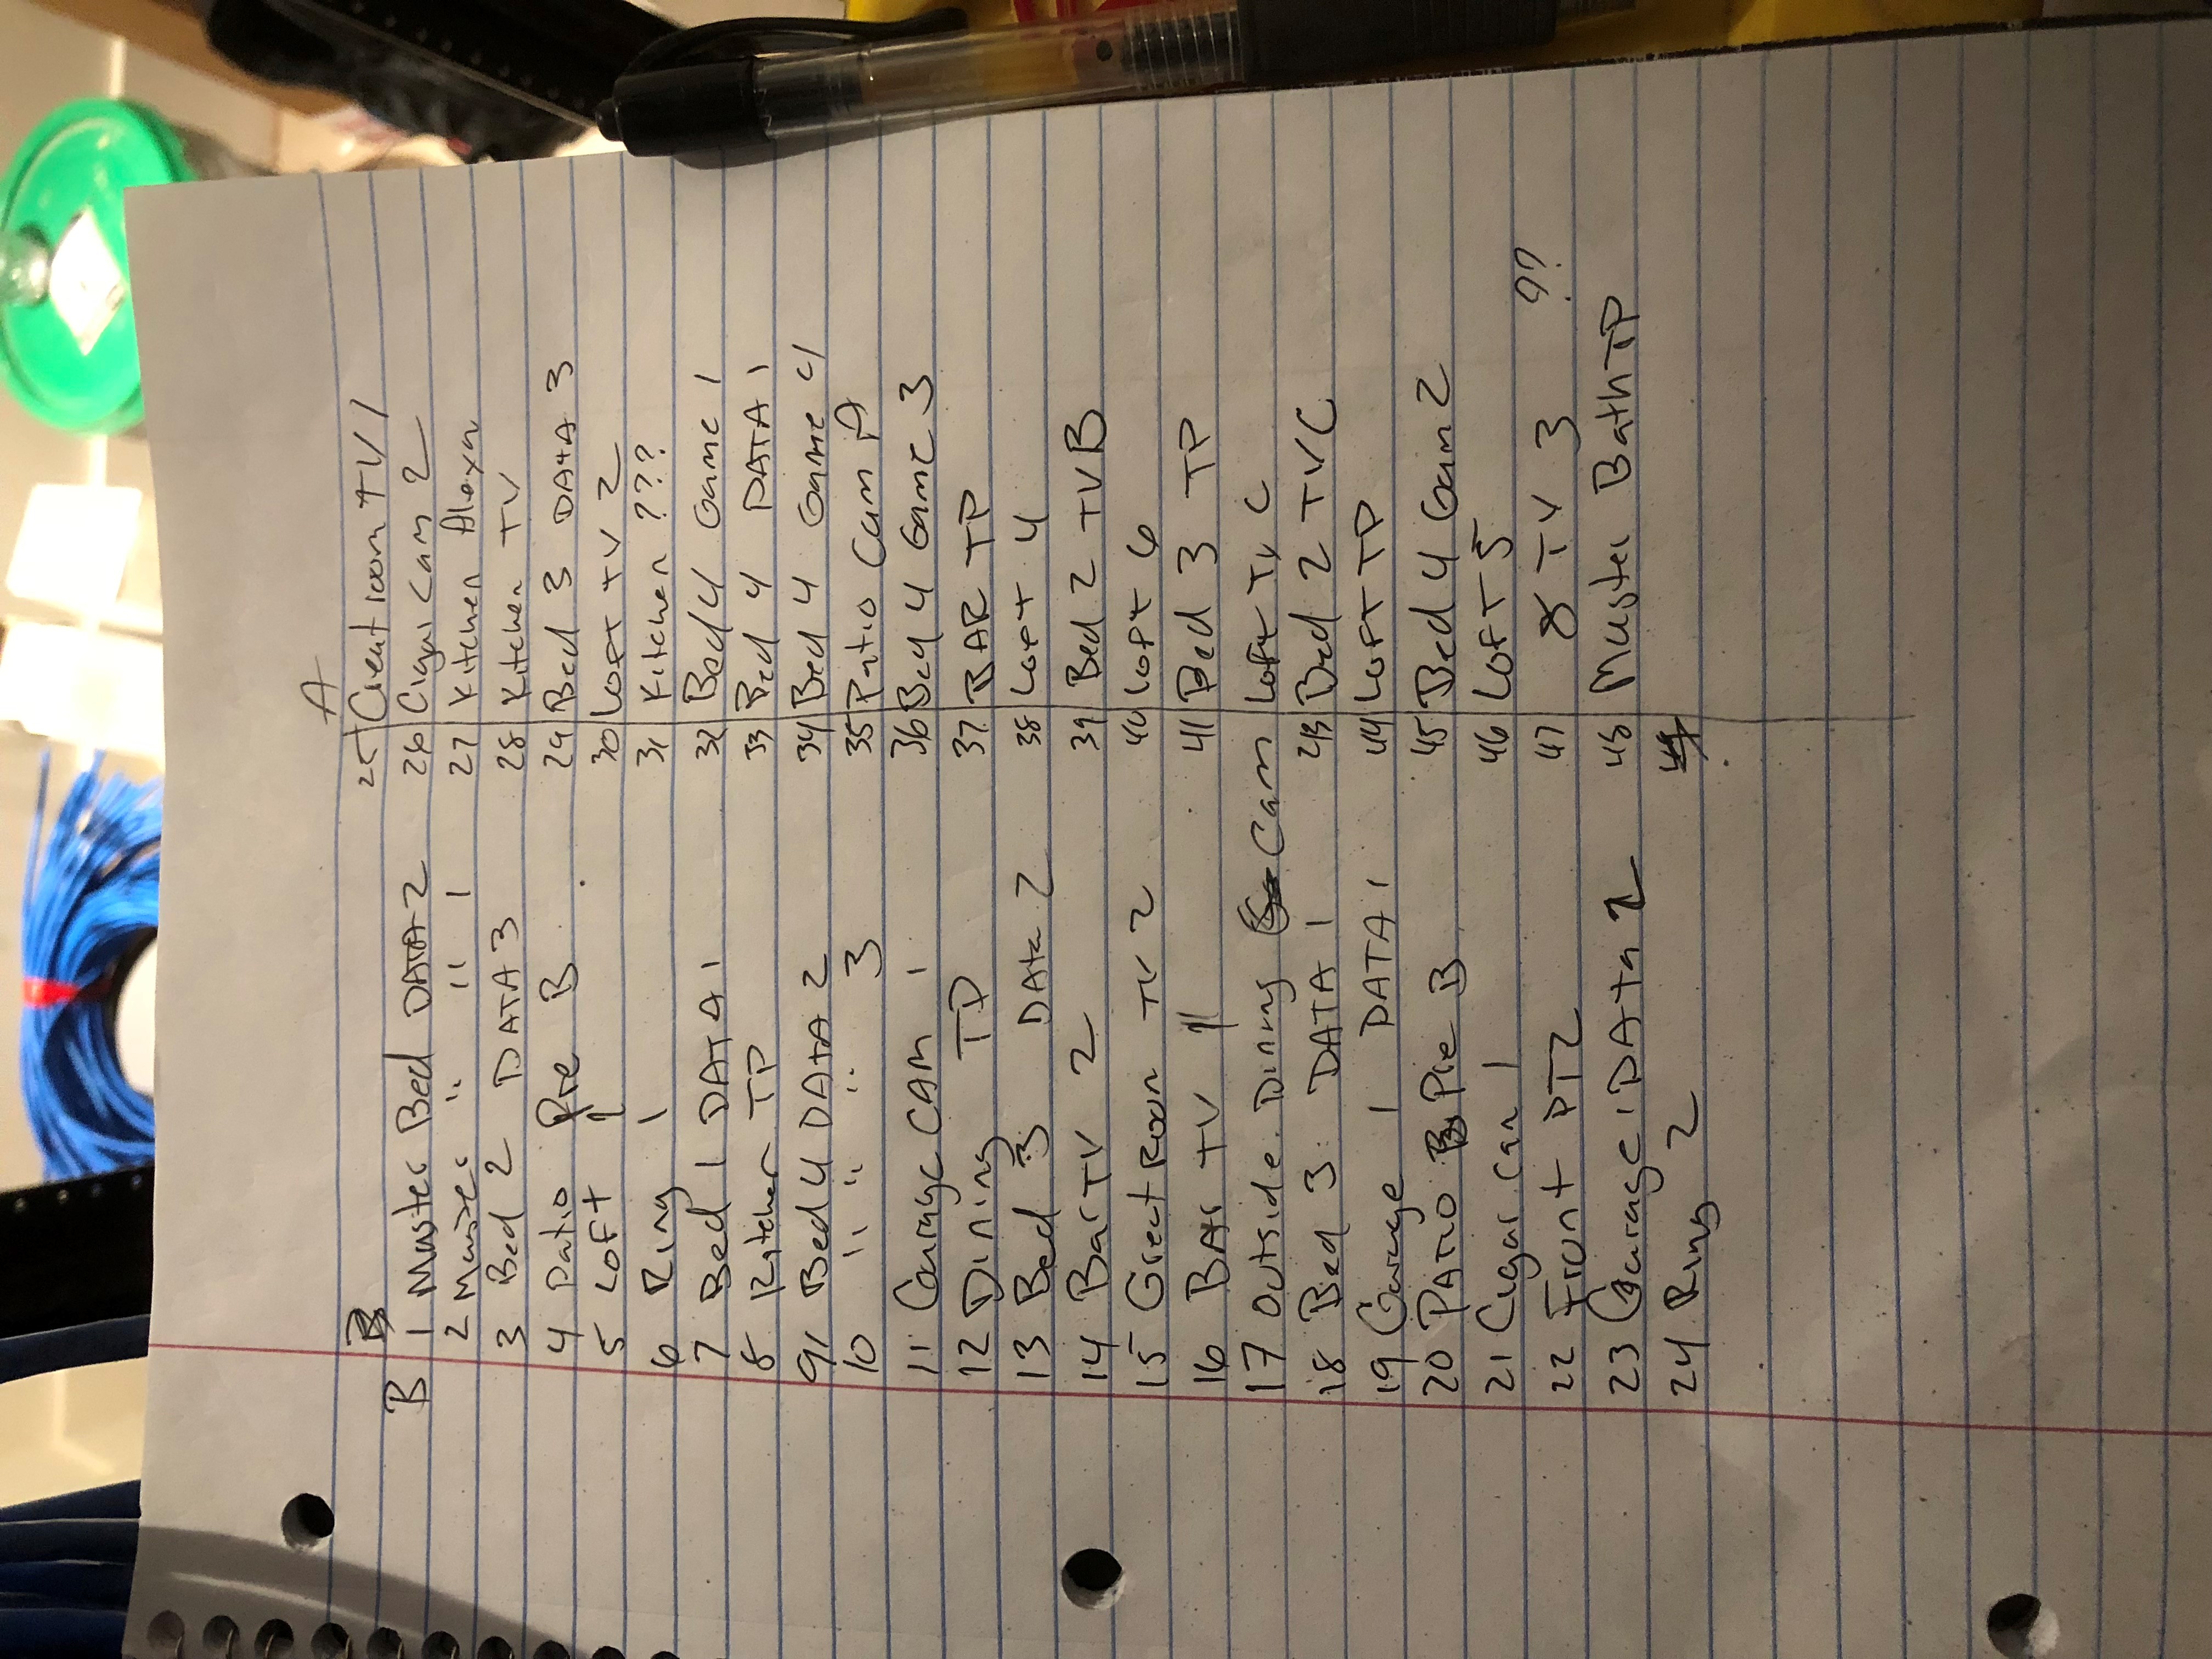 B
1 Master Bed DATA 2
2 Master " " 1
3 Bed 2 DATA 3
4 Patio Pre B
5 Loft 1
6 Ring 1
7 Bed 1 DATA 1
8 Kitchen TP
9 Bed 4 DATA 2
10 " " " 3
11 Garage CAM 1
12 Dining TP
13 Bed 3 DATA 2
14 Bar TV 2
15 Great Room TV 2
16 BAr TV 1
17 Outside Dining Cam
18 Bed 3 DATA 1
19 Garage 1 DATA 1
20 PATIO Pre B
21 Cigar can 1
22 Front PTZ
23 Garage 1 DATA 2
24 Ring 2
A
25 Great room TV 1
26 Cigar cam 2
27 Kitchen Alexa
28 Kitchen TV
29 Bed 3 DATA 3
30 Loft TV 2
31 Kitchen ???
32 Bed 4 Game 1
33 Bed 4 DATA 1
34 Bed 4 Game 4
35 Patio Cam A
36 Bed 4 Game 3
37 BAR TP
38 Loft 4
39 Bed 2 TV B
40 Loft 6
41 Bed 3 TP
Loft TV C
43 Bed 2 TV C
44 LOFT TP
45 Bed 4 Gam 2
46 LOFT 5
47 TV 3 ??
48 Master Bath TP